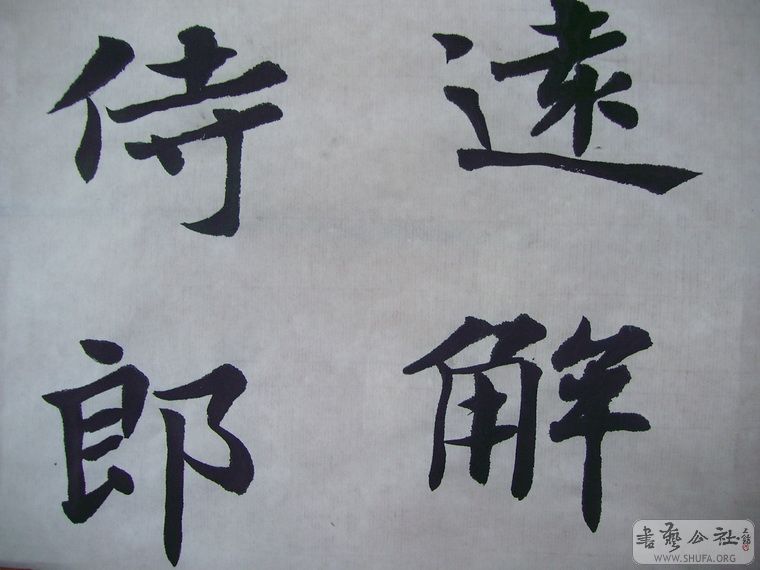 遠解
侍郎
書藝公社
WWW.SHUFA.ORG